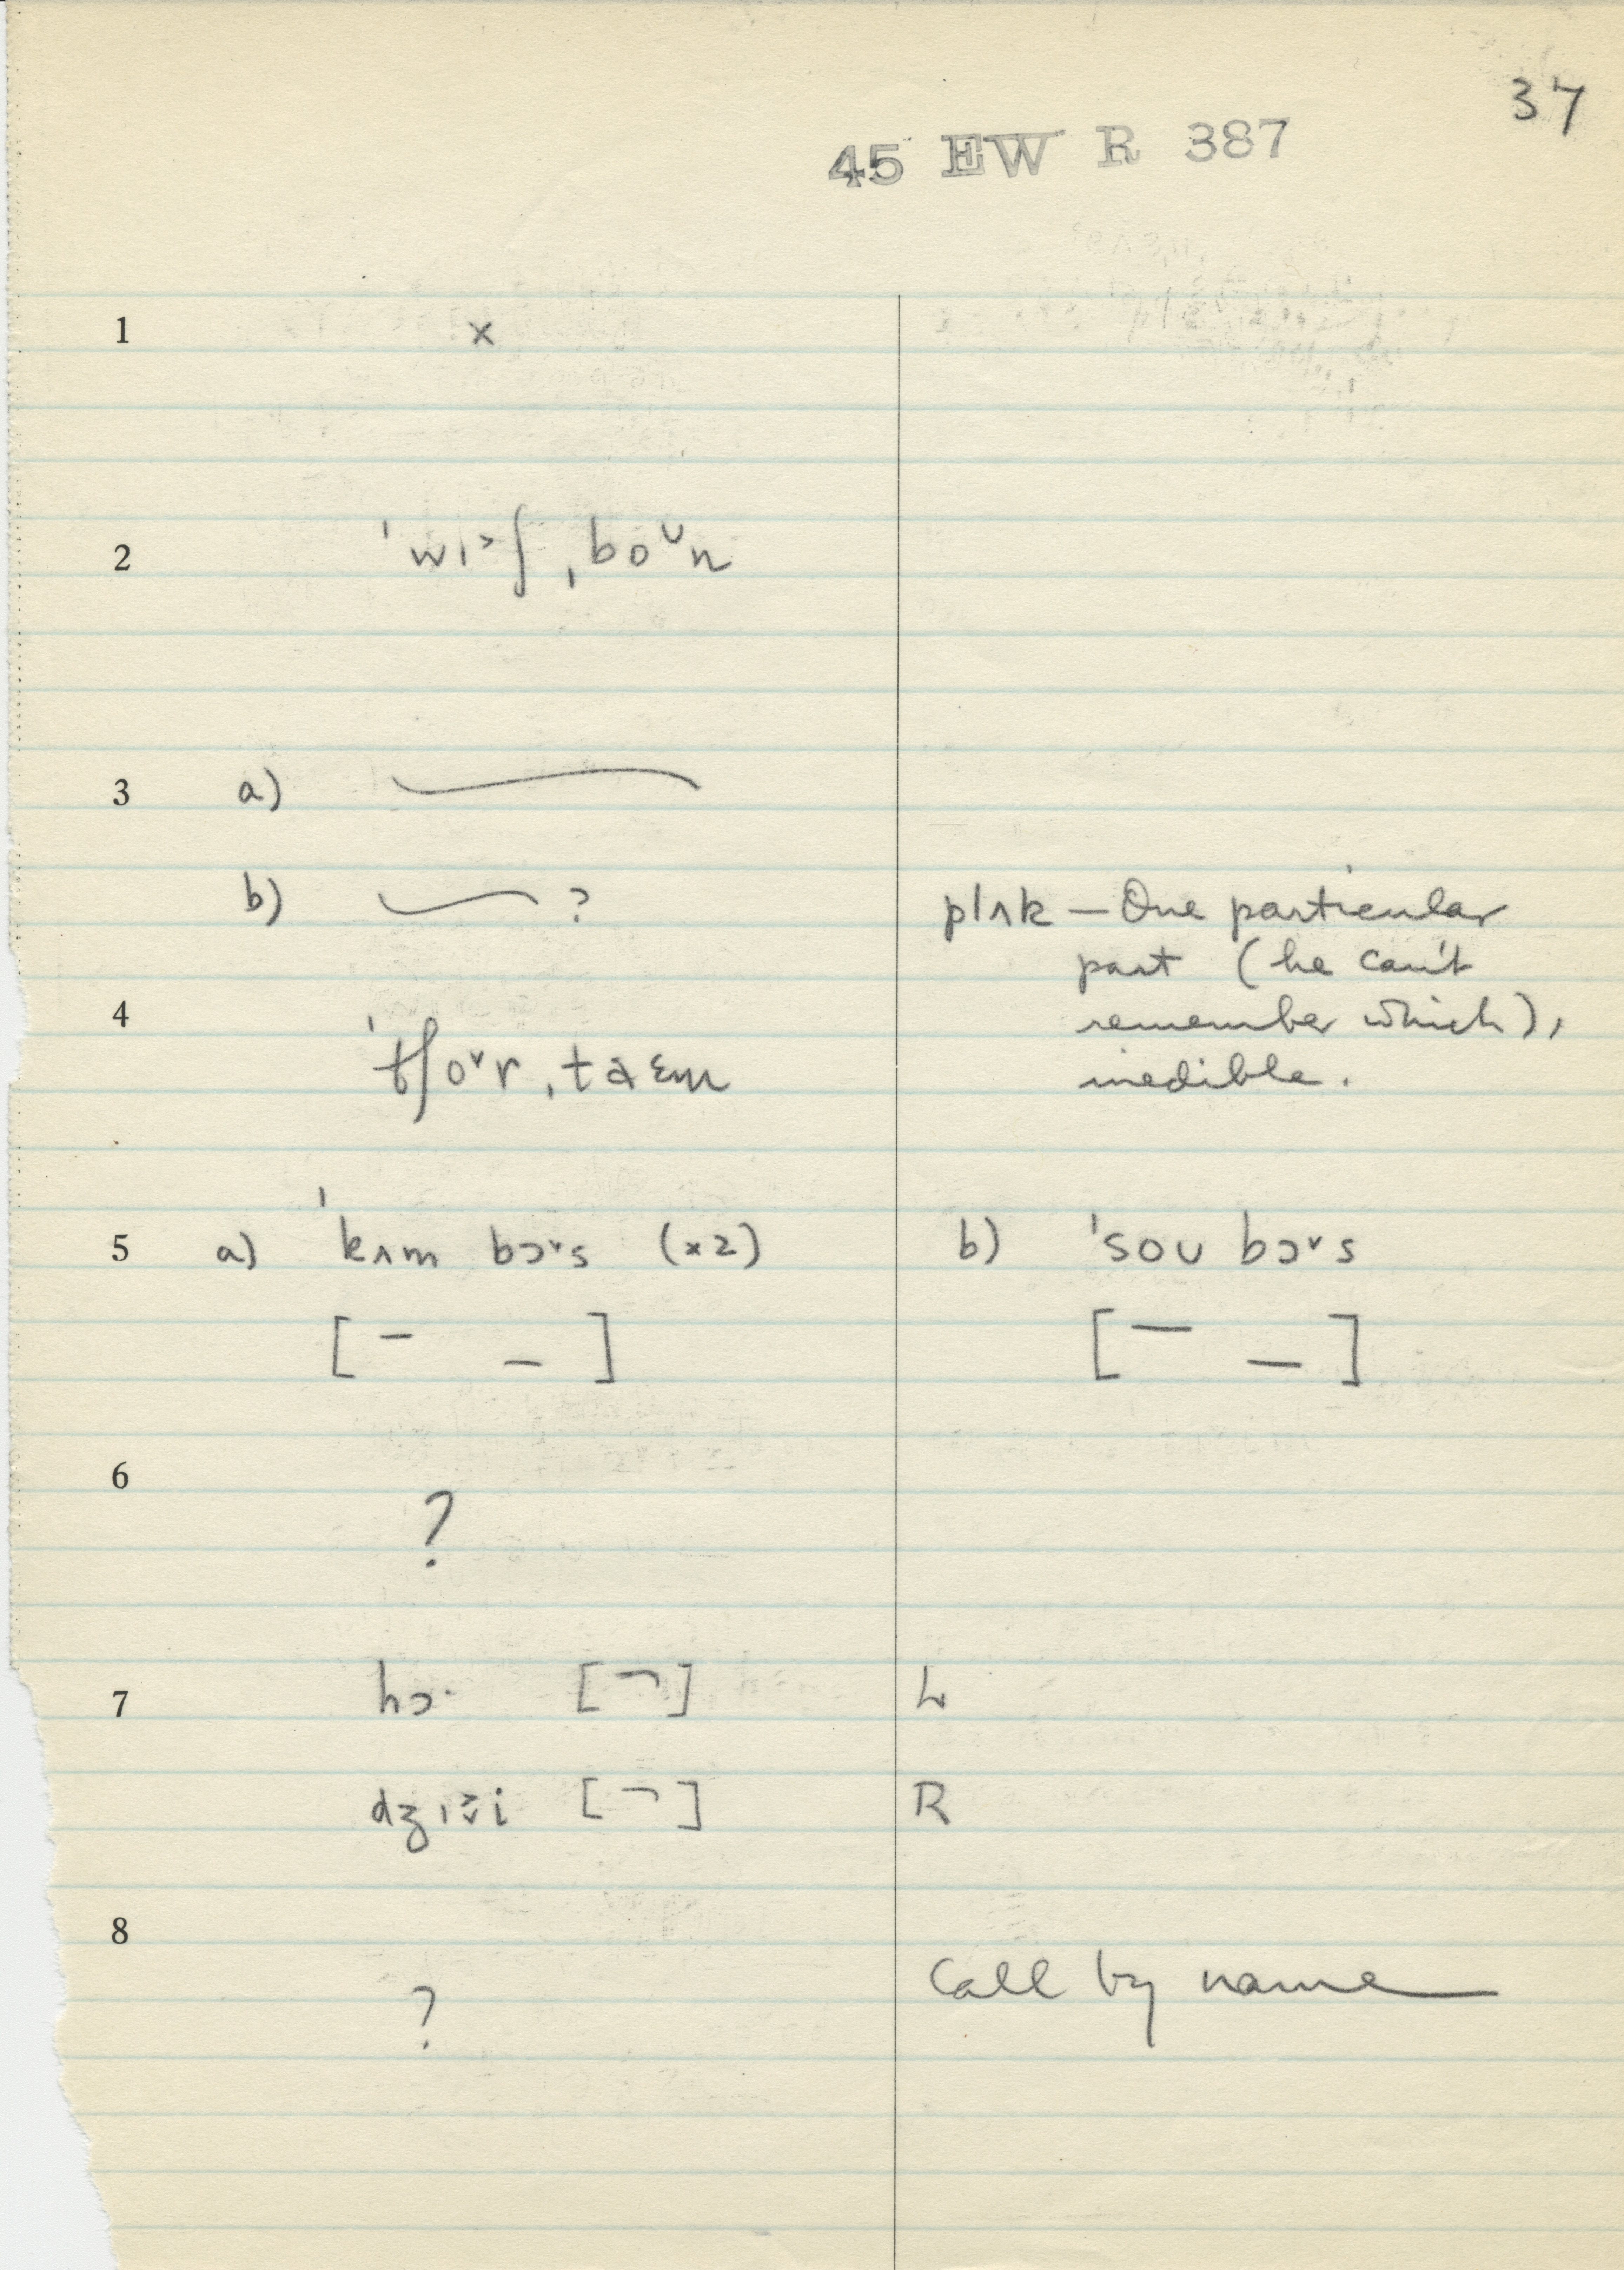 37
45 EW R 387
1 x
2 ˈwɪ˃ʃ ˌboᴜn
3 a)
b) ?
plʌk — One particular
part (he can't
remember which),
inedible.
4 ˈtʃo˅r ˌtaɛm
5 a) ˈkʌm bɔ˅s (x2) b) ˈsoʊ bɔ˅s
[ – – ] [ – – ]
6 ?
7 hɔ· [ ¬ ] L
[ ¬ ] R
8
Call by name
?